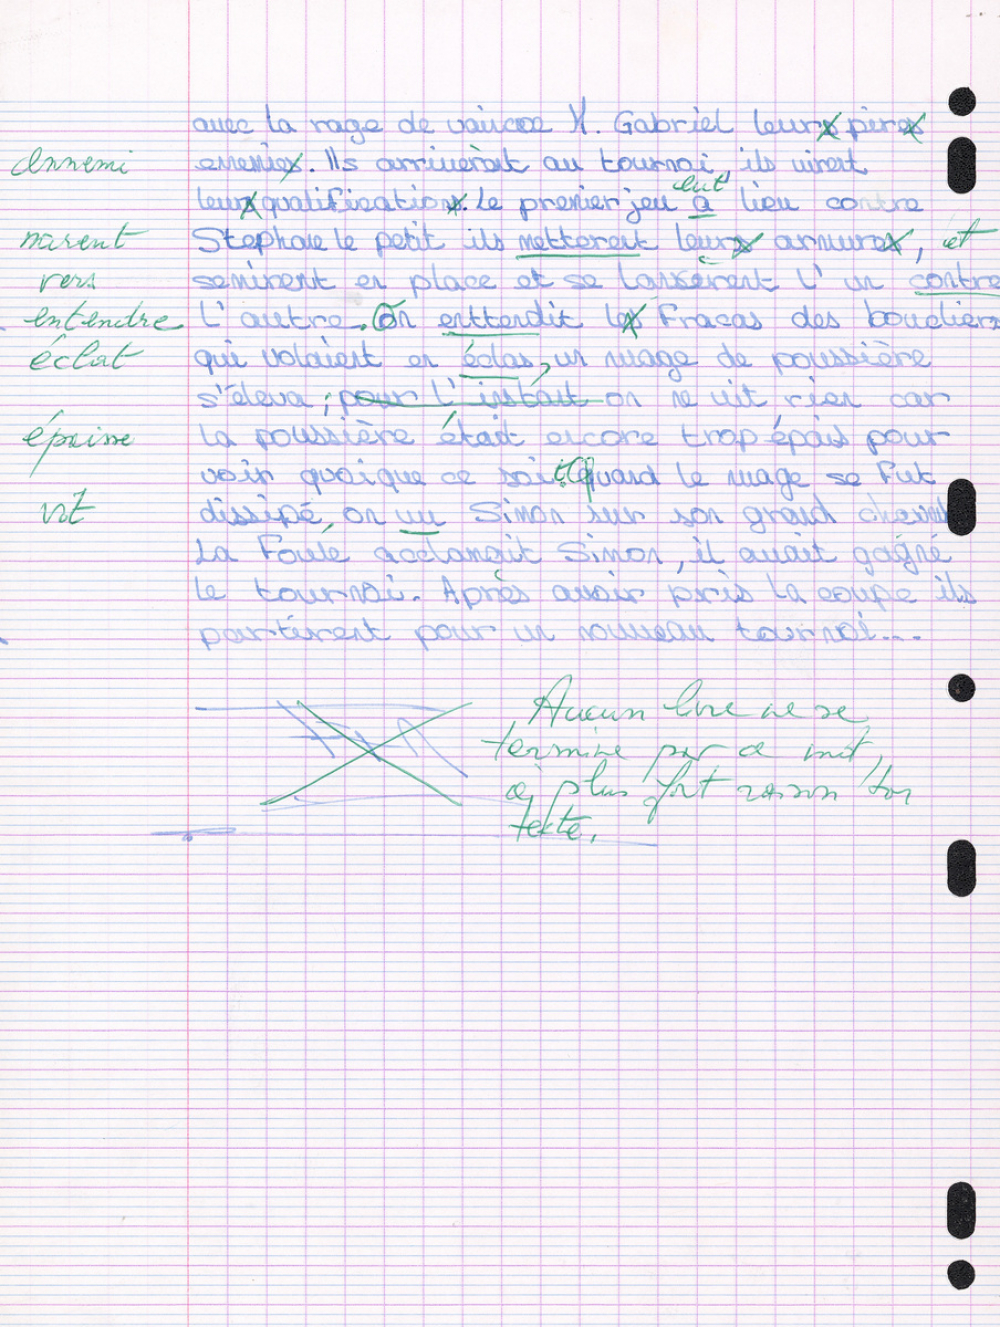 avec la rage de vaincre M. Gabriel leurs pires
ennemi
ennemies. Ils arrivèrent au tournoi, ils virent
eut
leurs qualifications. Le premier jeu a lieu contre
mirent
Stephane le petit ils metterent leurs armures, et
vers
semirent en place et se lansèrent l'un contre
entendre
l'autre. On enttendit les Fracas des boucliers
éclat
qui volaient en éclas, un nuage de poussière
s'éleva ; pour l'instant on ne vit rien car
épaisse
la poussière était encore trop épais pour
voir quoique ce soit. Quand le nuage se fut
vit
dissipé, on vu Simon sur son grand cheval
La Foule acclamait Simon, il avait gagné
le tournoi. Après avoir pris la coupe ils
partirent pour un nouveau tournoi...
FIN
Aucun livre ne se
termine par ce mot,
à plus fort raison ton
texte.